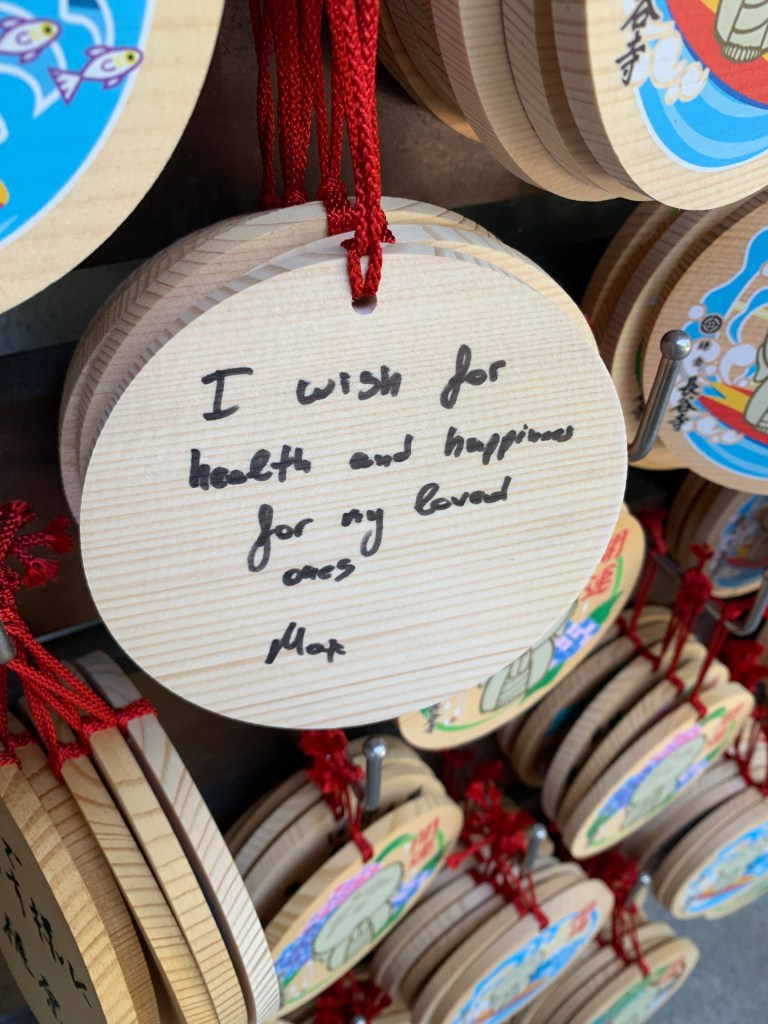 I wish for
health and happiness
for my loved
ones
Max
谷寺
長谷寺
開運